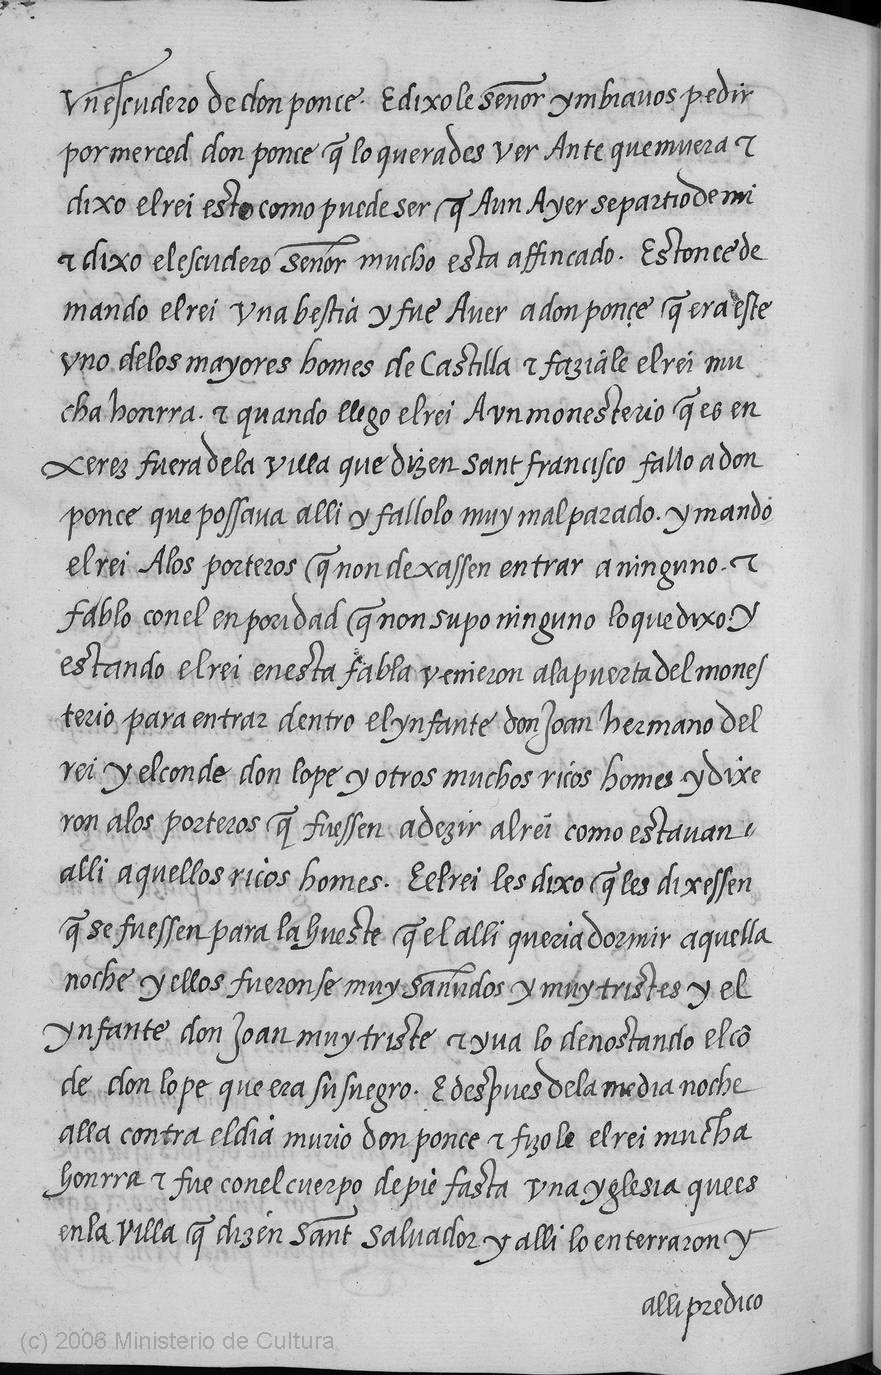 vn escudero de don ponce. E dixole señor ymbiauos pedir
por merced don ponce q̃ lo querades ver Ante que muera τ
dixo el rei esto como puede ser q̃ Aun Ayer se partio de mi
τ dixo el escudero señor mucho esta affincado. Estonce de
mando el rei vna bestia y fue Auer a don ponçe q̃ era este
vno delos mayores homes de Castilla τ faziale el rei mu
cha honrra. τ quando llego el rei A vn monesterio q̃ es en
xerez fuera dela villa que dizen sant francisco fallo a don
ponce que possaua alli y fallolo muy mal parado. y mandó
el rei Alos porteros q̃ non dexassen entrar a ninguno. τ
fablo conel en poridad q̃ non supo ninguno lo que dixo. y
estando el rei en esta fabla venieron ala puerta del mones
terio para entrar dentro el ynfante don Joan hermano del
rei y el conde don lope y otros muchos ricos homes y dixe
ron alos porteros q̃ fuessen a dezir al rei como estauan
alli aquellos ricos homes. E el rei les dixo q̃ les dixessen
q̃ se fuessen para la hueste q̃ el alli queria dormir aquella
noche y ellos fueronse muy sañudos y muy tristes y el
ynfante don Joan muy triste τ yua lo denostando el cõ
de don lope que era su suegro. E despues dela media noche
alla contra el dia murio don ponce τ fizole el rei mucha
honrra τ fue conel cuerpo de pie fasta vna yglesia que es
en la villa q̃ dizen Sant Saluador y alli lo enterraron y
alli predico
(c) 2006 Ministerio de Cultura